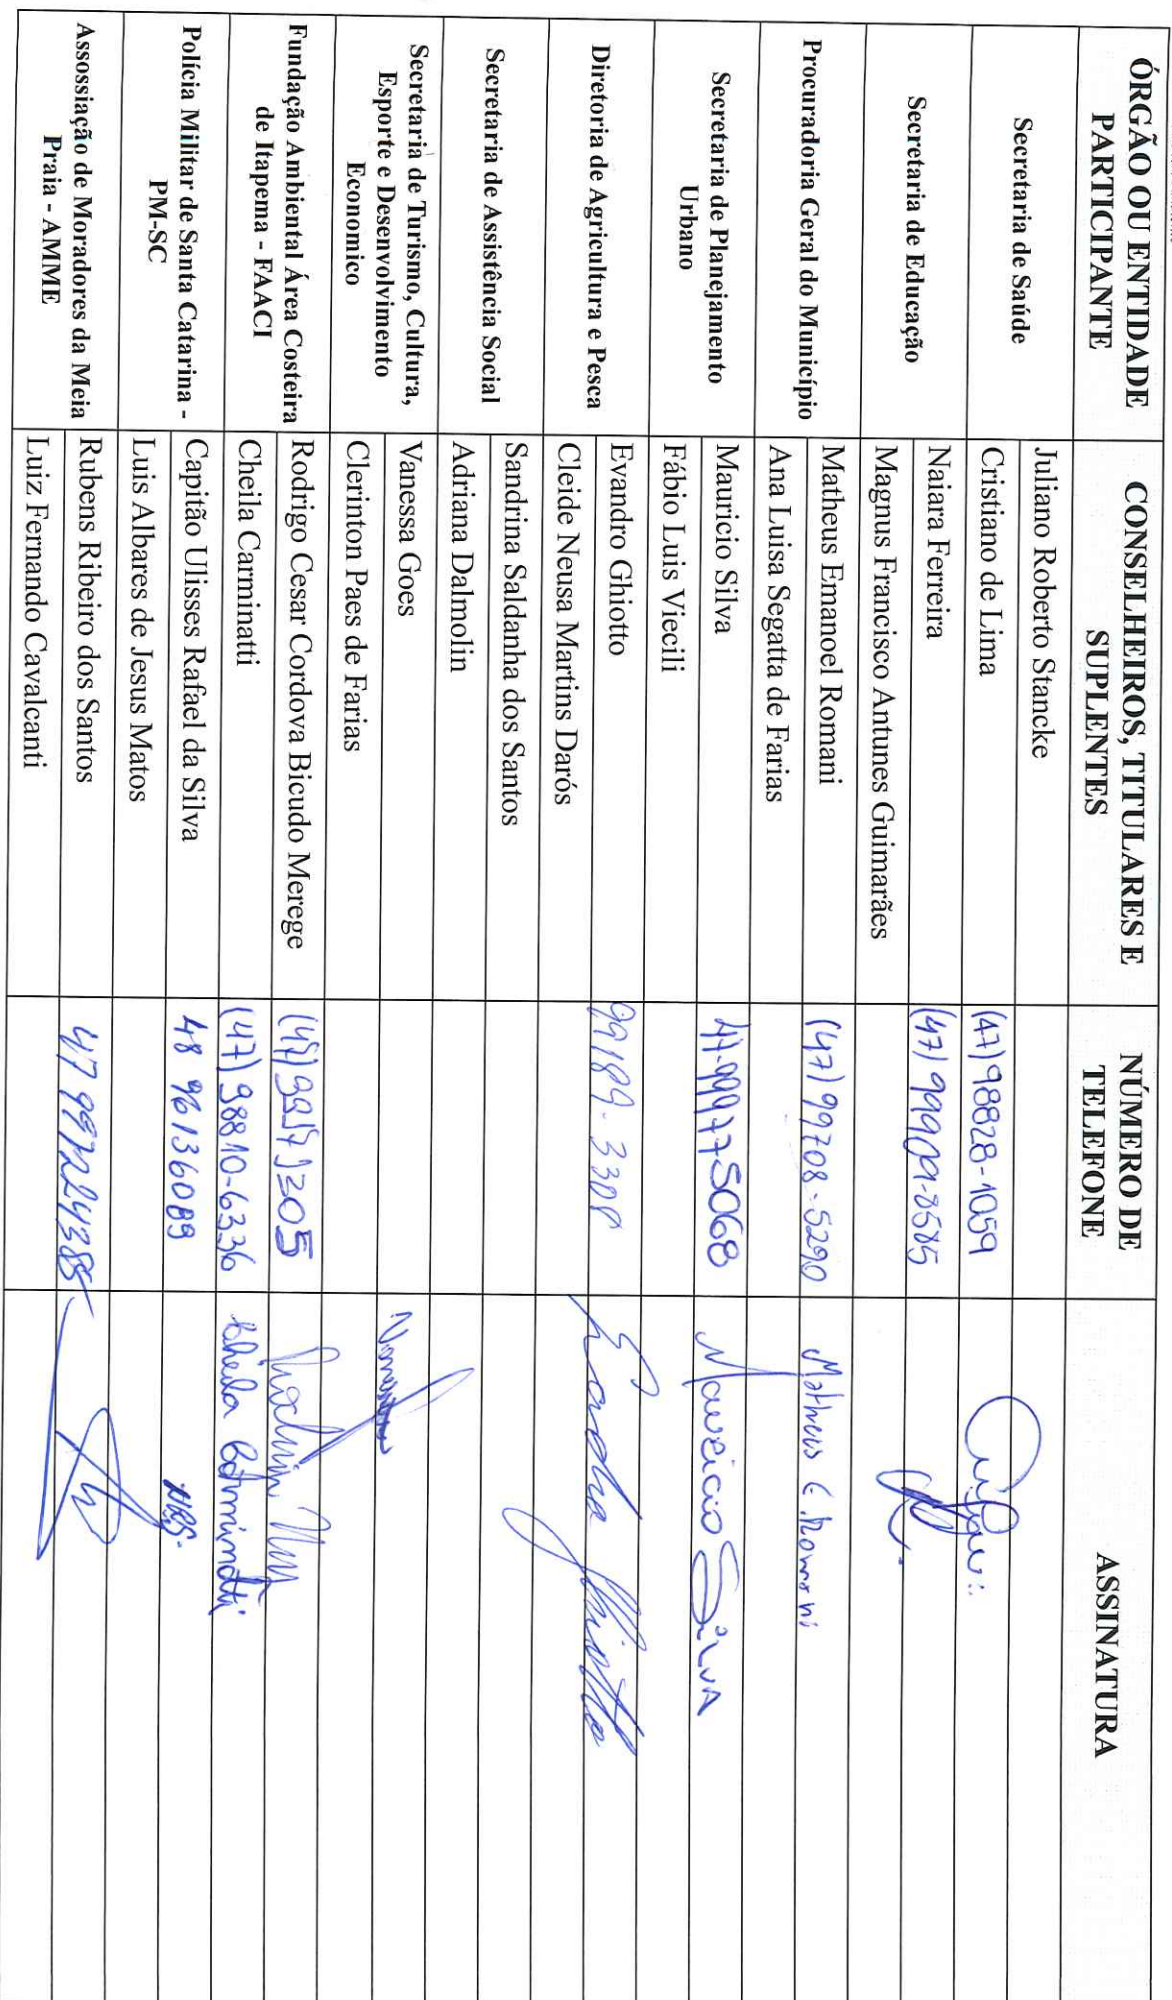 ÓRGÃO OU ENTIDADE
PARTICIPANTE
CONSELHEIROS, TITULARES E
SUPLENTES
NÚMERO DE
TELEFONE
ASSINATURA
Secretaria de Saúde
Juliano Roberto Stancke
Cristiano de Lima
(47) 98828-1059
Secretaria de Educação
Naiara Ferreira
(47) 99909-8585
Magnus Francisco Antunes Guimarães
Procuradoria Geral do Município
Matheus Emanoel Romani
(47) 99708-5290
Matheus E. Romani
Ana Luisa Segatta de Farias
Secretaria de Planejamento
Urbano
Mauricio Silva
Mauricio Silva
Fábio Luis Viecili
Diretoria de Agricultura e Pesca
Evandro Ghiotto
99189-3308
Evandro Ghiotto
Cleide Neusa Martins Darós
Secretaria de Assistência Social
Sandrina Saldanha dos Santos
Adriana Dalmolin
Secretaria de Turismo, Cultura,
Esporte e Desenvolvimento
Economico
Vanessa Goes
Clerinton Paes de Farias
Fundação Ambiental Área Costeira
de Itapema - FAACI
Rodrigo Cesar Cordova Bicudo Merege
Cheila Carminatti
(47) 98810-6336
Cheila Carminatti
Polícia Militar de Santa Catarina -
PM-SC
Capitão Ulisses Rafael da Silva
48 96136089
Luis Albares de Jesus Matos
Assossiação de Moradores da Meia
Praia - AMME
Rubens Ribeiro dos Santos
47 997224385
Luiz Fernando Cavalcanti